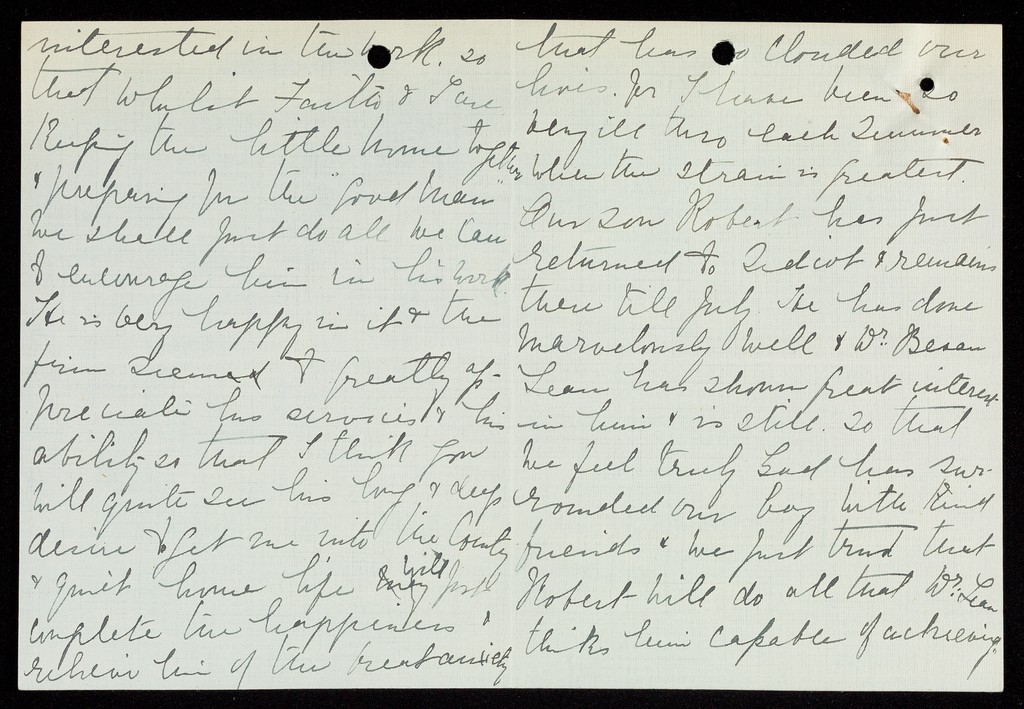 interested in the work. so
that whilst Faith & I are
keeping the little home together
& preparing for the "good man"
we shall just do all we can
to encourage him in his work.
He is very happy in it & the
firm seemed to greatly ap-
preciate his services & his
ability so that I think you
will quite see his long & deep
desire to get me into the County
& quiet home life will just
complete the happiness &
relieve him of the great anxiety
that has so clouded our
lives. for I have been so
very ill thro each Summer
when the strain is greatest.
Our son Robert has just
returned to Sidcot & remains
there till July. He has done
marvelously well & Dr. Bevan
Lean has shown great interest
in him & is still. So that
we feel truly God has sur-
rounded our boy with kind
friends & we just trust that
Robert will do all that Dr. Lean
thinks him capable of achieving.